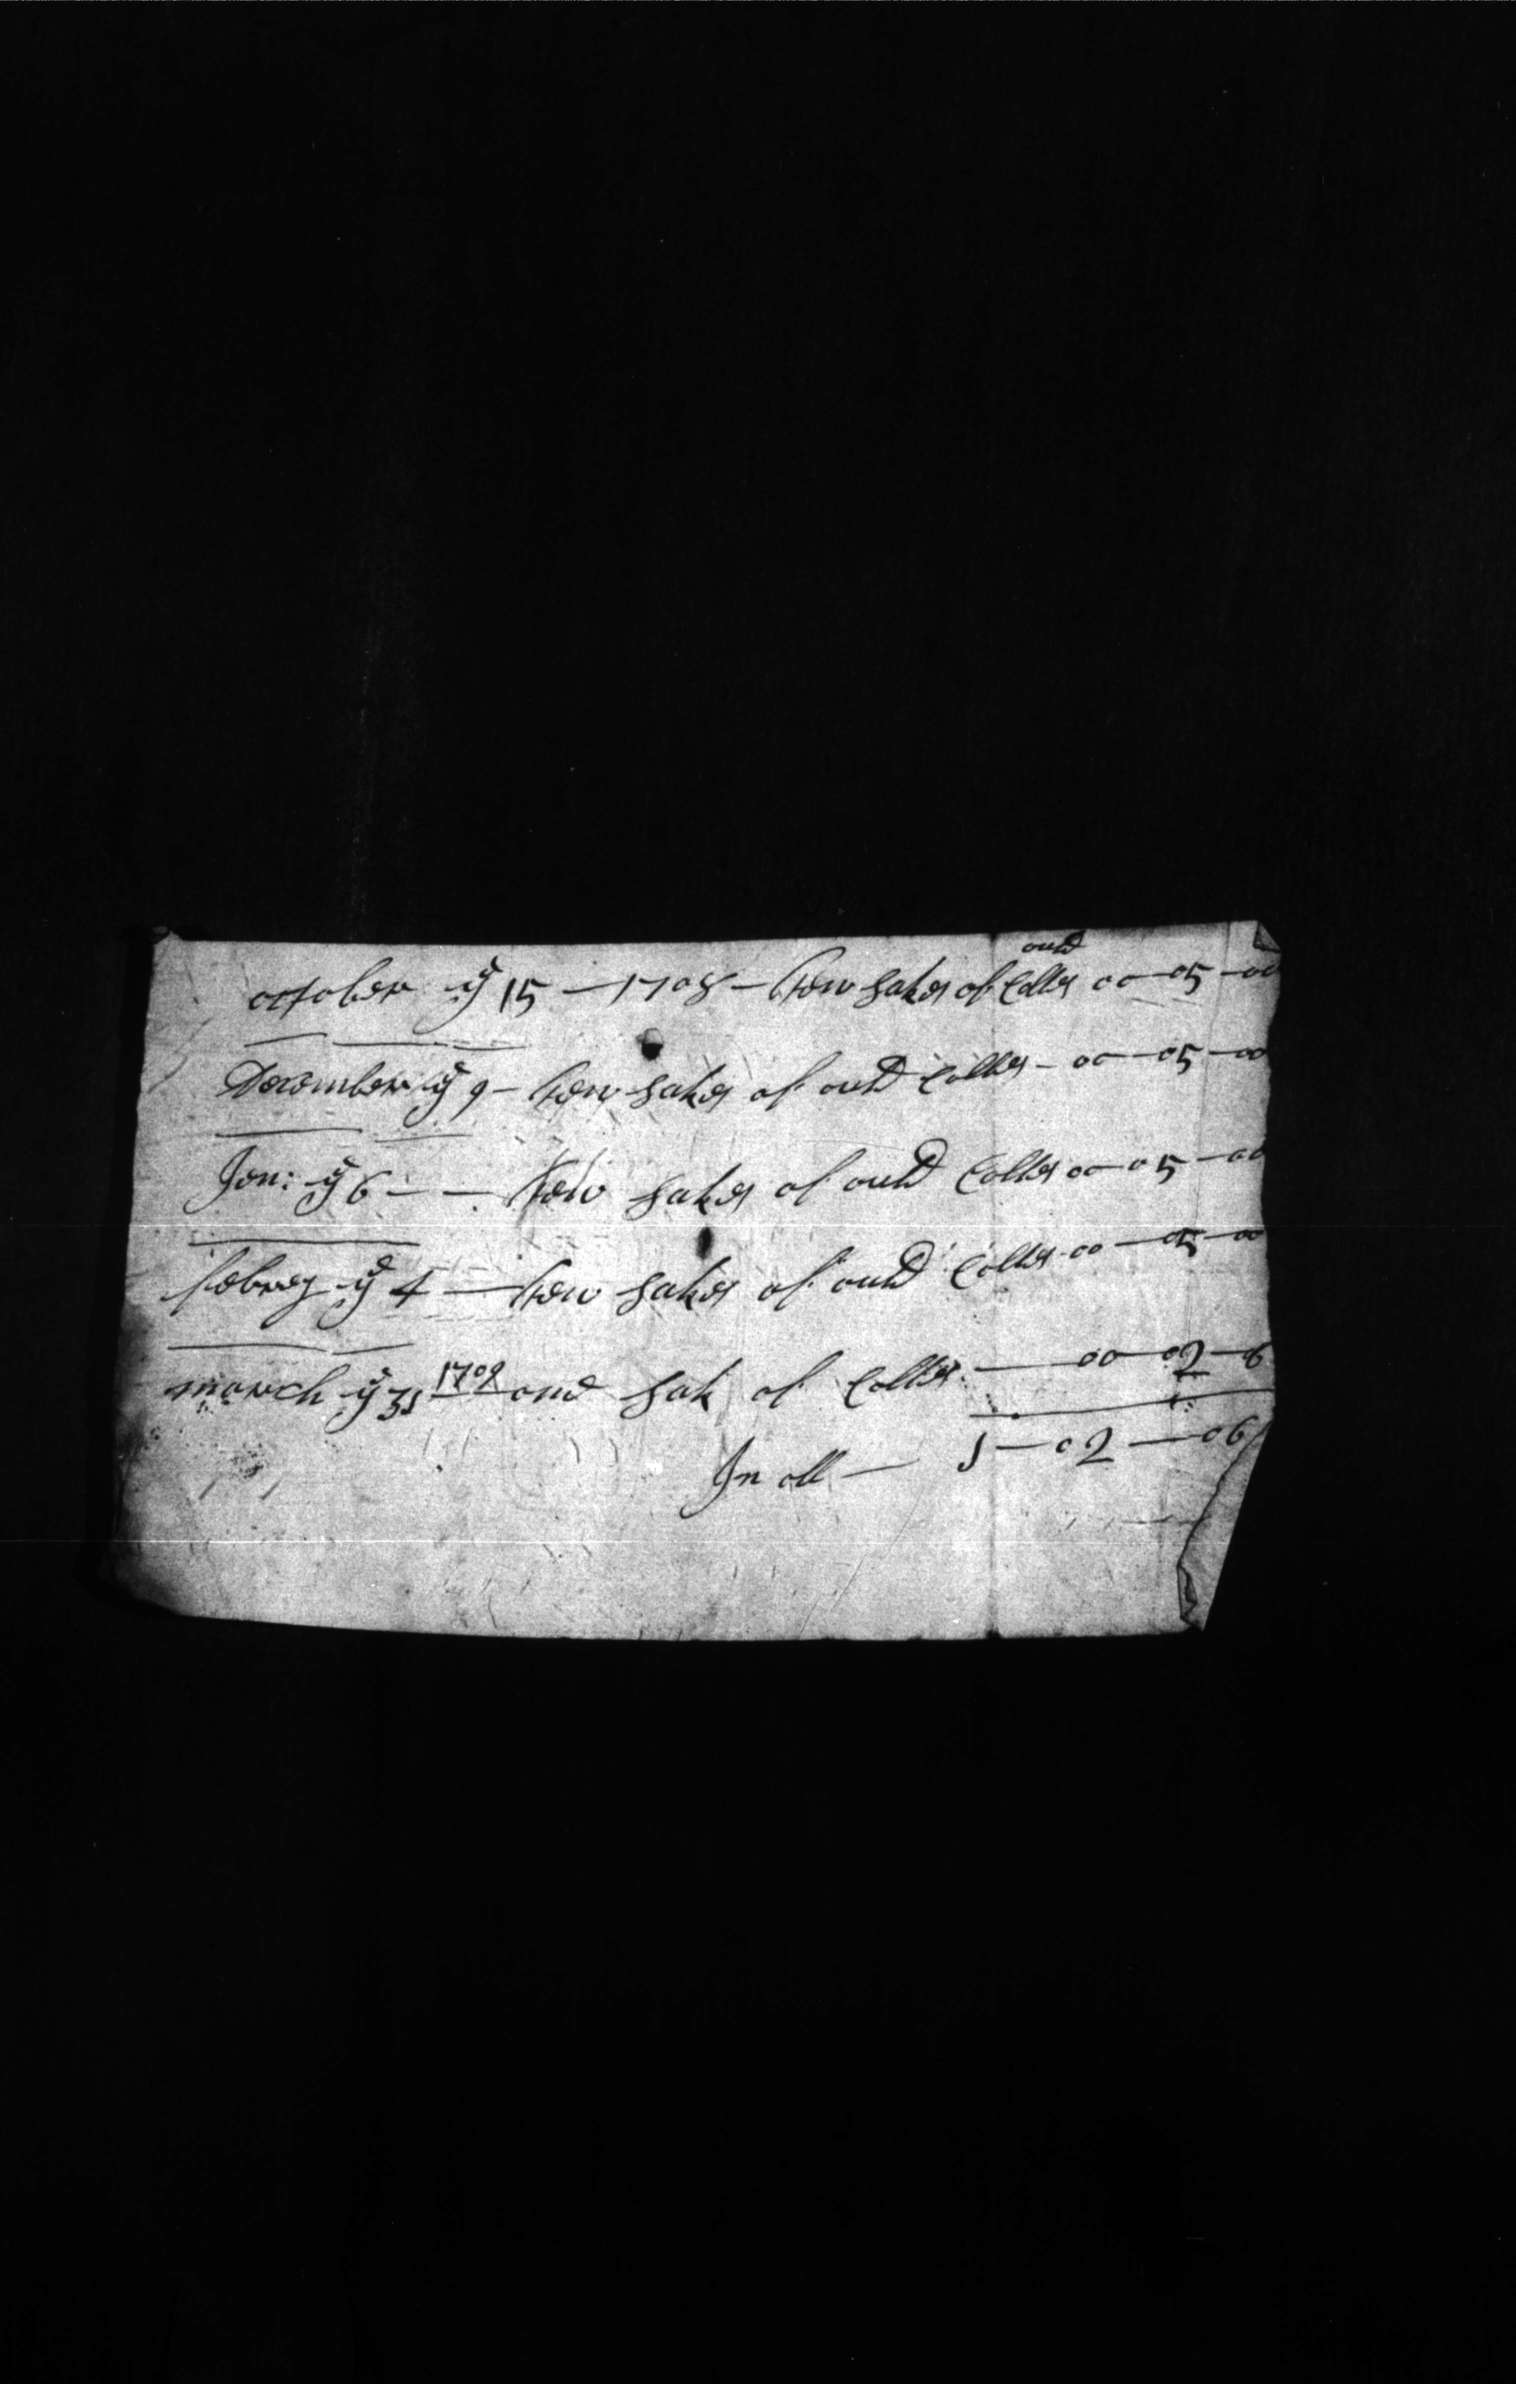 october ye 15 — 1708 — tew sakes of ould Colles 00 — 05 — 00
December ye 9 — tew sakes of ould Colles — 00 — 05 — 00
Jen: ye 6 — — tew sakes of ould Colles 00 — 05 — 00
febrey ye 4 — tew sakes of ould Colles 00 — 05 — 00
march ye 31 1709 one sak of Colles — 00 — 02 — 6
In all — 1 — 02 — 06